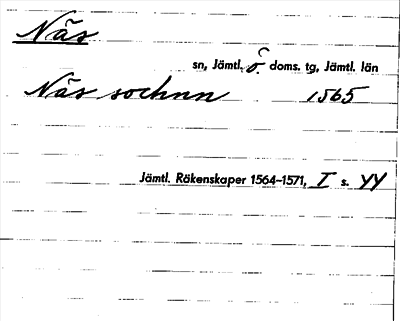 Näs
sn, Jämtl. ö. doms. tg, Jämtl. län
Näs sochnn 1565
Jämtl. Räkenskaper 1564-1571, I s. YY